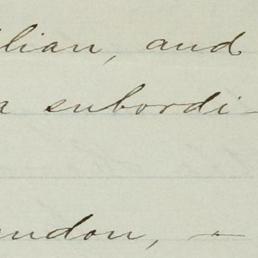 lian, and
a subordi-
ndon, -